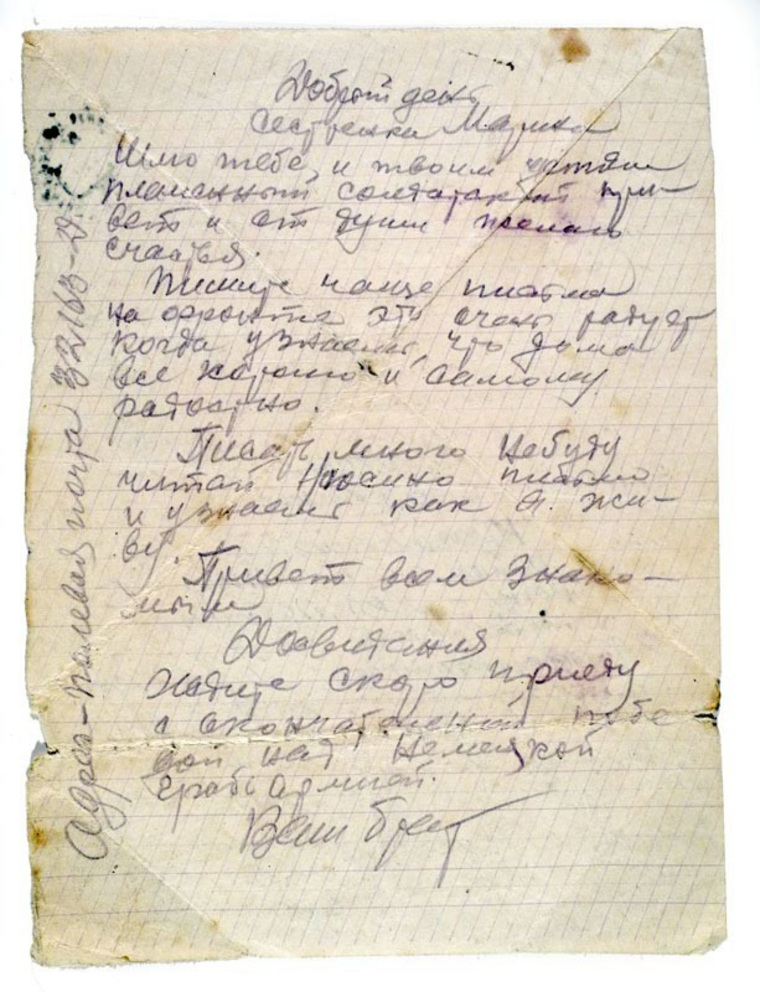 Добрый день
Сестренка Марина
Шлю тебе, и твоим детям
пламенный солдатский при-
вет и от души желаю
счастья.
Пишите чаще письма
на фронт эти очень радует
когда узнаешь, что дома
все хорошо и самому
радостно.
Писать много небуду
читай Нюсино письмо
и узнаешь как я жи-
ву.
Привет всем знако-
мым
Досвидания
Ждите скоро приеду
с окончательной побе
дой над немецкой
грабьармией.
Ваш брат
Адрес-полевая почта 32163-Д